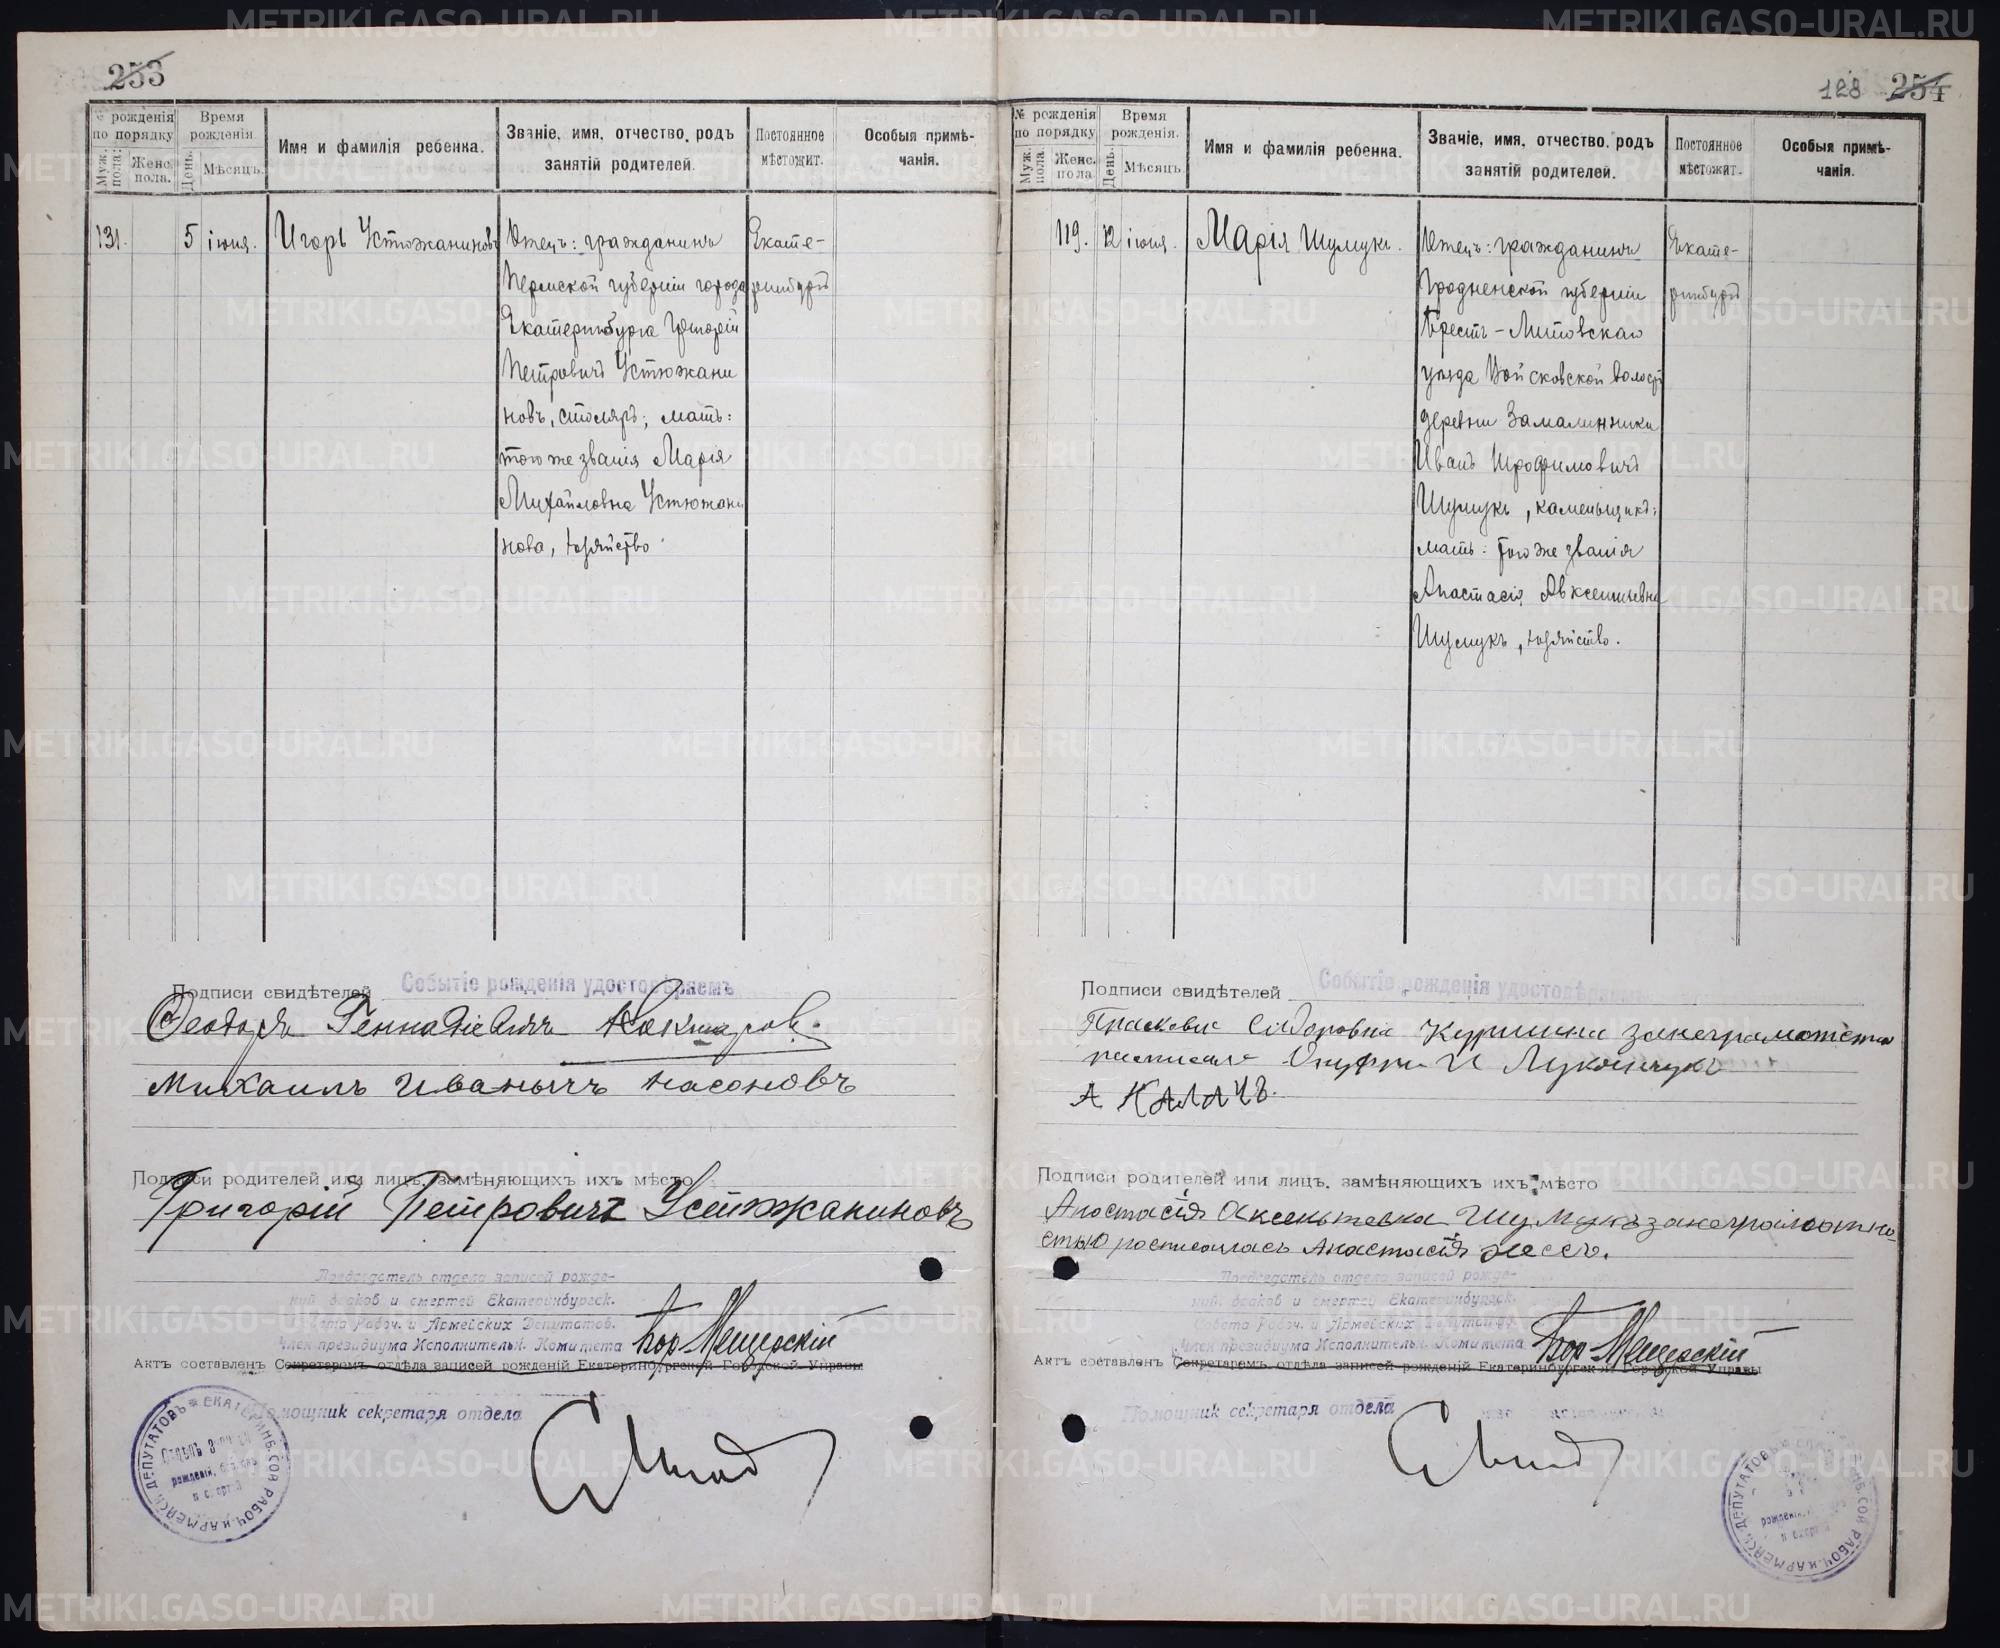 253
№ рожденія
по порядку
Муж. пола.
Женс. пола.
Время
рожденія.
День.
Мѣсяцъ.
Имя и фамилія ребенка.
Званіе, имя, отчество, родъ
занятій родителей.
Постоянное
мѣстожит.
Особыя примѣ-
чанія.
131.
5
іюня.
Игорь Устюжаниновъ
Отецъ: гражданинъ
Пермской губерніи города
Екатеринбурга Григорій
Петровичъ Устюжани
новъ, столяръ; мать:
того же званія Марія
Михайловна Устюжани
нова, хозяйство.
Екате-
ринбургъ
Подписи свидѣтелей
Событіе рожденія удостовѣряемъ
Феодоръ Геннадіевичъ
Михаилъ Иванычъ Насоновъ
Подписи родителей или лицъ, замѣняющихъ ихъ мѣсто
Григорій Петровичъ Устюжаниновъ
Председатель отдела записей рожде-
ний, браков и смертей Екатеринбургск.
Совета Рабоч. и Армейских Депутатов.
Член президиума Исполнительн. Комитета
Актъ составленъ Секретаремъ отдѣла записей рожденій Екатеринбургской Городской Управы
Помощник секретаря отдела
ЕКАТЕРИНБ. СОВ. РАБОЧ. И АРМЕЙСК. ДЕПУТАТОВЪ
рожденій, браковъ
и смертей
128 254
№ рожденія
по порядку
Муж. пола.
Женс. пола
Время
рожденія.
День.
Мѣсяцъ
Имя и фамилія ребенка.
Званіе, имя, отчество, родъ
занятій родителей.
Постоянное
мѣстожит.
Особыя примѣ-
чанія.
119.
12
іюня.
Марія Шумукъ.
Отецъ: гражданинъ
Гродненской губерніи
Брестъ-Литовскаго
уѣзда Войсковской волости
деревни Замалинники
Иванъ Трофимовичъ
Шумукъ, каменьщикъ;
мать: того же званія
Анастасія Авксентьевна
Шумукъ, хозяйство.
Екате-
ринбургъ
Подписи свидѣтелей
Событіе рожденія удостовѣряемъ
Прасковіе Сидоровна
А КАЛАЧЪ.
Подписи родителей или лицъ, замѣняющихъ ихъ мѣсто
Анастасія Аксентьевна Шумукъ за неграмотно-
стью росписалась Анастасія
Председатель отдела записей рожде-
ний, браков и смертей Екатеринбургск.
Совета Рабоч. и Армейских Депутатов.
Член президиума Исполнительн. Комитета
Актъ составленъ Секретаремъ отдѣла записей рожденій Екатеринбургской Городской Управы
Помощник секретаря отдела
СОВ. РАБОЧ. И АРМЕЙСК. ДЕПУТАТОВЪ
рожденій
и смертей
METRIKI.GASO-URAL.RU